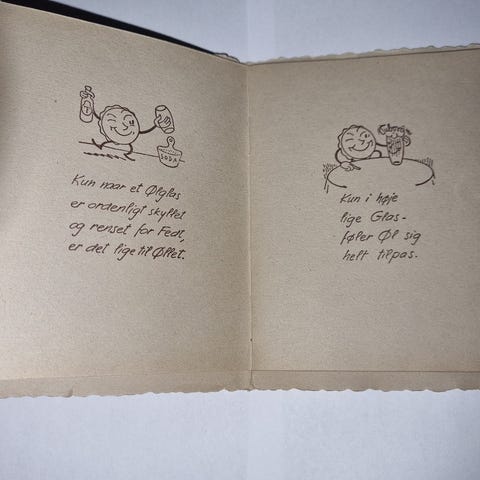 SODA
Kun naar et Ølglas
er ordenligt skyllet
og renset for Fedt,
er det lige til Øllet.
Kun i høje
lige Glas-
føler Øl sig
helt tilpas.